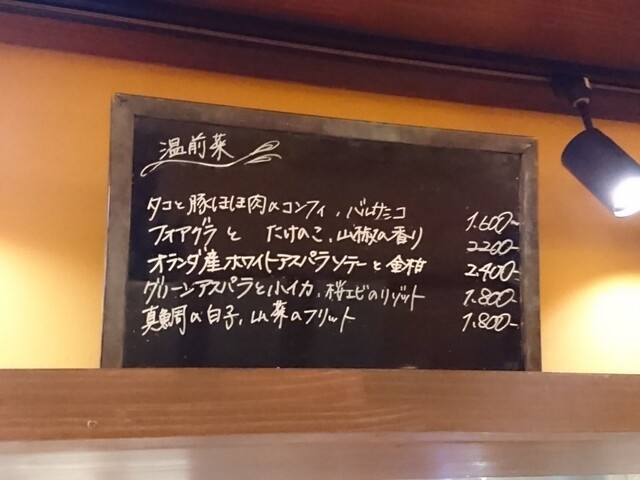 温前菜
タコと豚ほほ肉のコンフィ、バルサミコ 1.600-
フォアグラと たけのこ、山椒の香り 2200-
オランダ産ホワイトアスパラソテーと金柑 2.400-
グリーンアスパラと小イカ、桜エビのリゾット 1.800-
真鯛の白子、山菜のフリット 1.800-